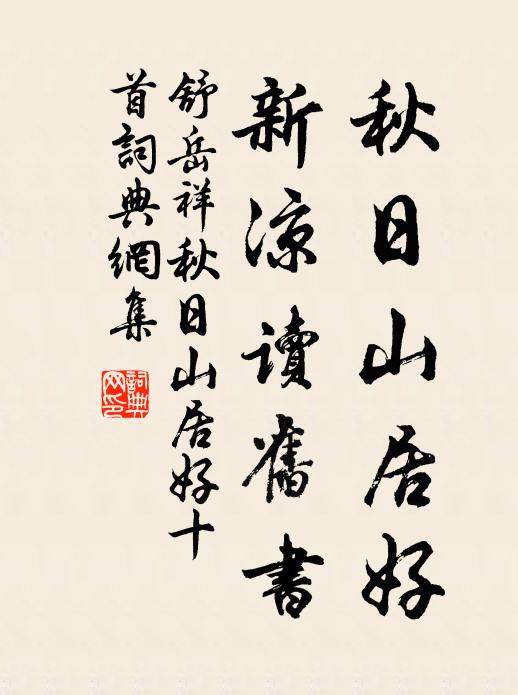 秋日山居好
新涼讀舊書
舒岳祥秋日山居好十
首詞典網集
詞典
网印